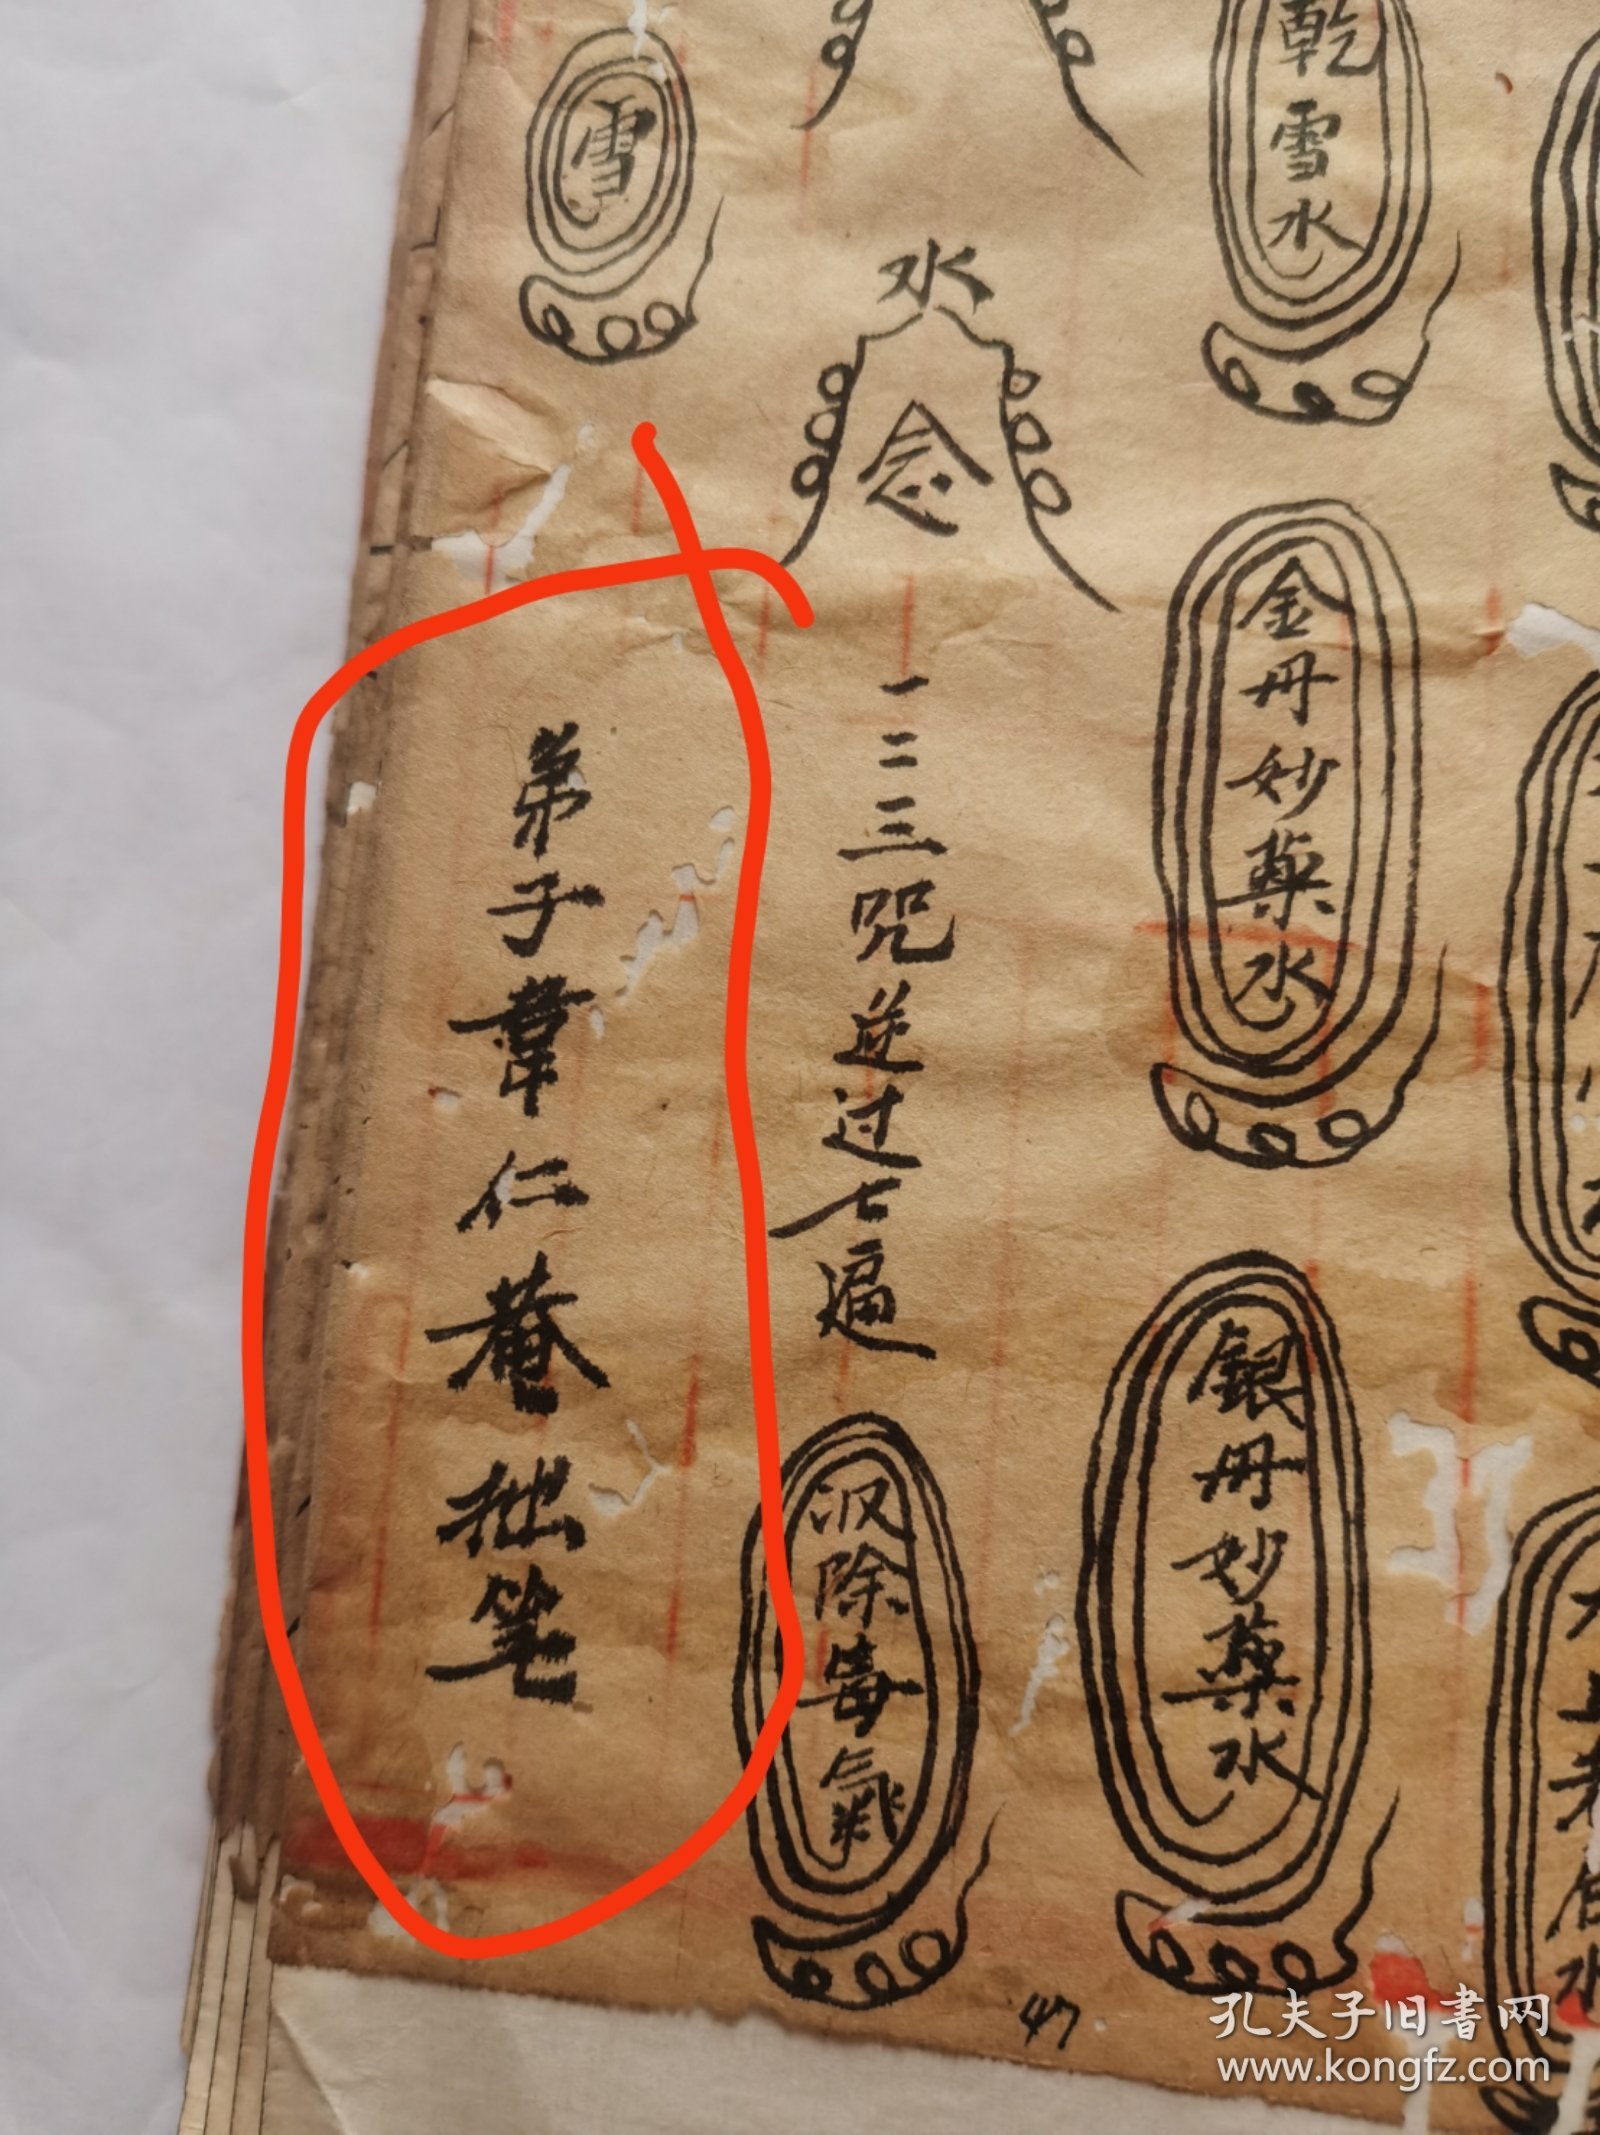 乾雪水
金丹妙藥水
銀丹妙藥水
水
念
一二三咒逆过七遍
収除毒氣
雪
弟子韋仁菴拙笔
47
孔夫子旧書网
www.kongfz.com